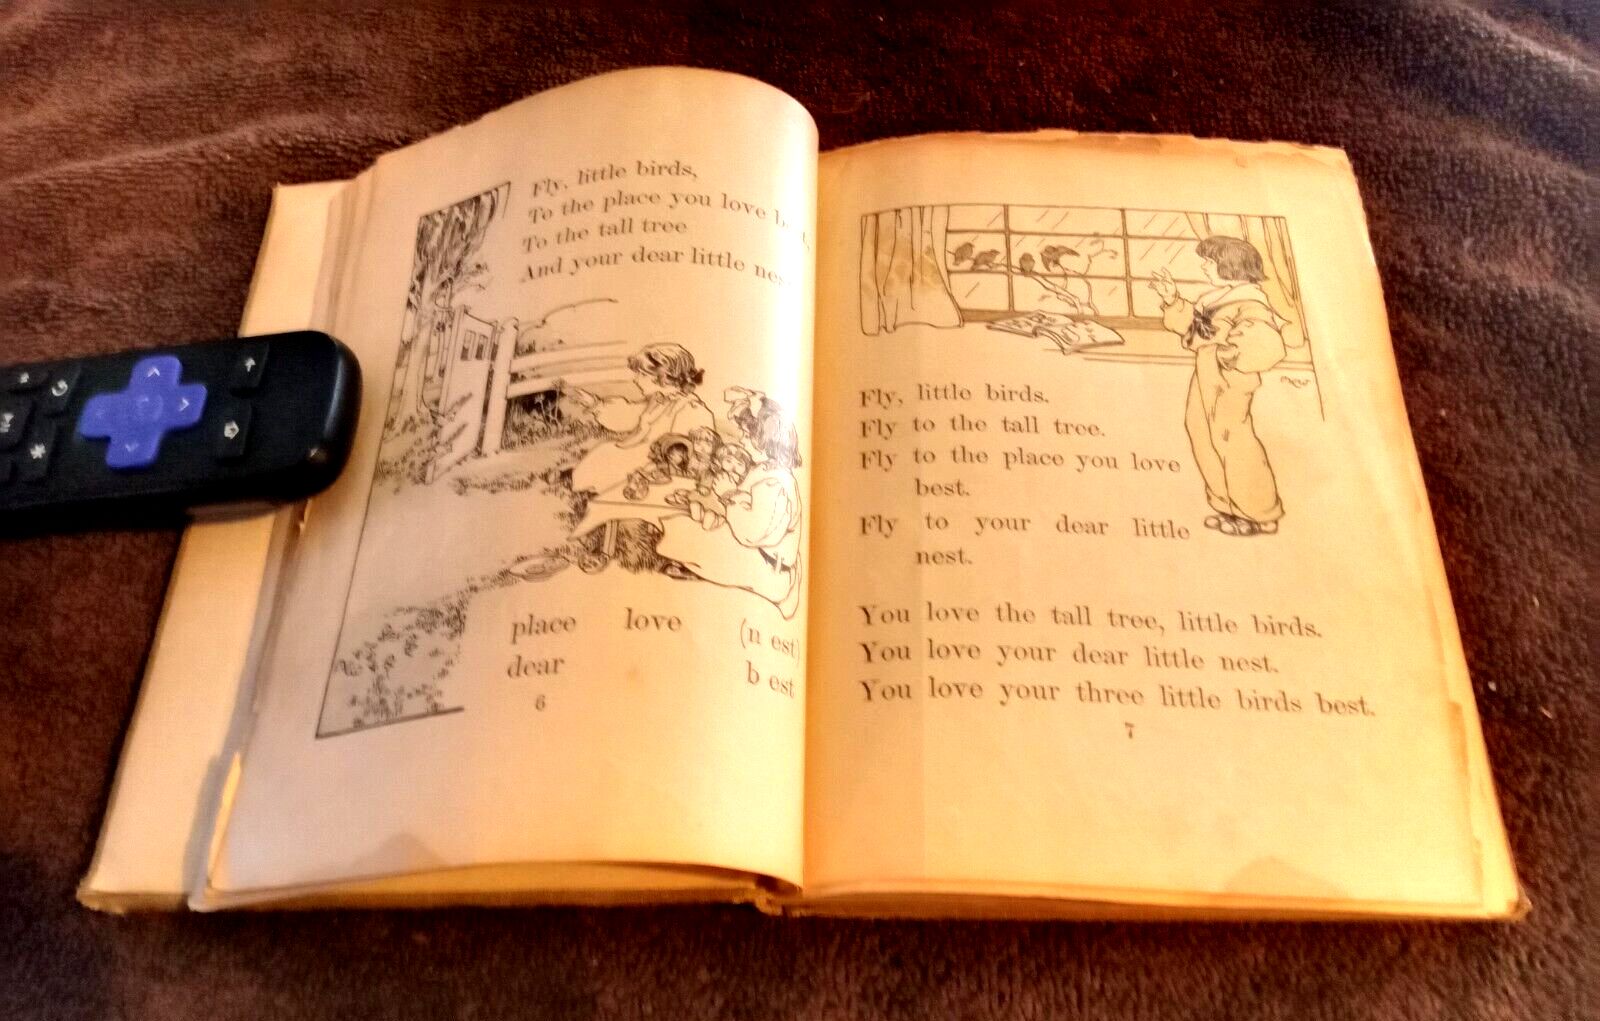 Fly, little birds,
To the place you love best,
To the tall tree
And your dear little nest.
place love (n est)
dear b est
6
Fly, little birds.
Fly to the tall tree.
Fly to the place you love
best.
Fly to your dear little
nest.
You love the tall tree, little birds.
You love your dear little nest.
You love your three little birds best.
7